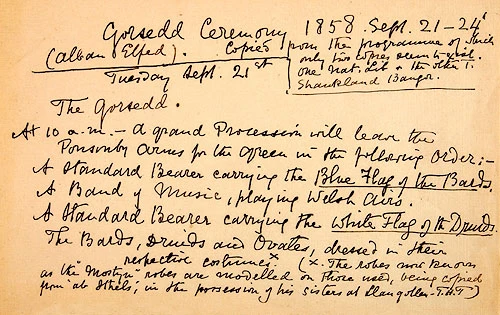 Gorsedd Ceremony 1858. Sept. 21-24
(Alban Elfed). Copied from the programme of which
only two copies seem to exist.
one Nat. Lib & the other T.
Shankland Bangor.
Tuesday Sept. 21st
The Gorsedd.
At 10 a.m. - a grand Procession will leave the
Ponsonby Arms for the Green in the following order; -
A Standard Bearer carrying the Blue Flag of the Bards.
A Band of Music, playing Welsh Airs.
A Standard Bearer carrying the White Flag of th Druids.
The Bards, Druids and Ovates, dressed in their
respective costumes x (x. The robes now known
as the "Mostyn" robes are modelled on those used, being copied
from ab Ithel's, in the possession of his sisters at Llangollen - T.H.T)